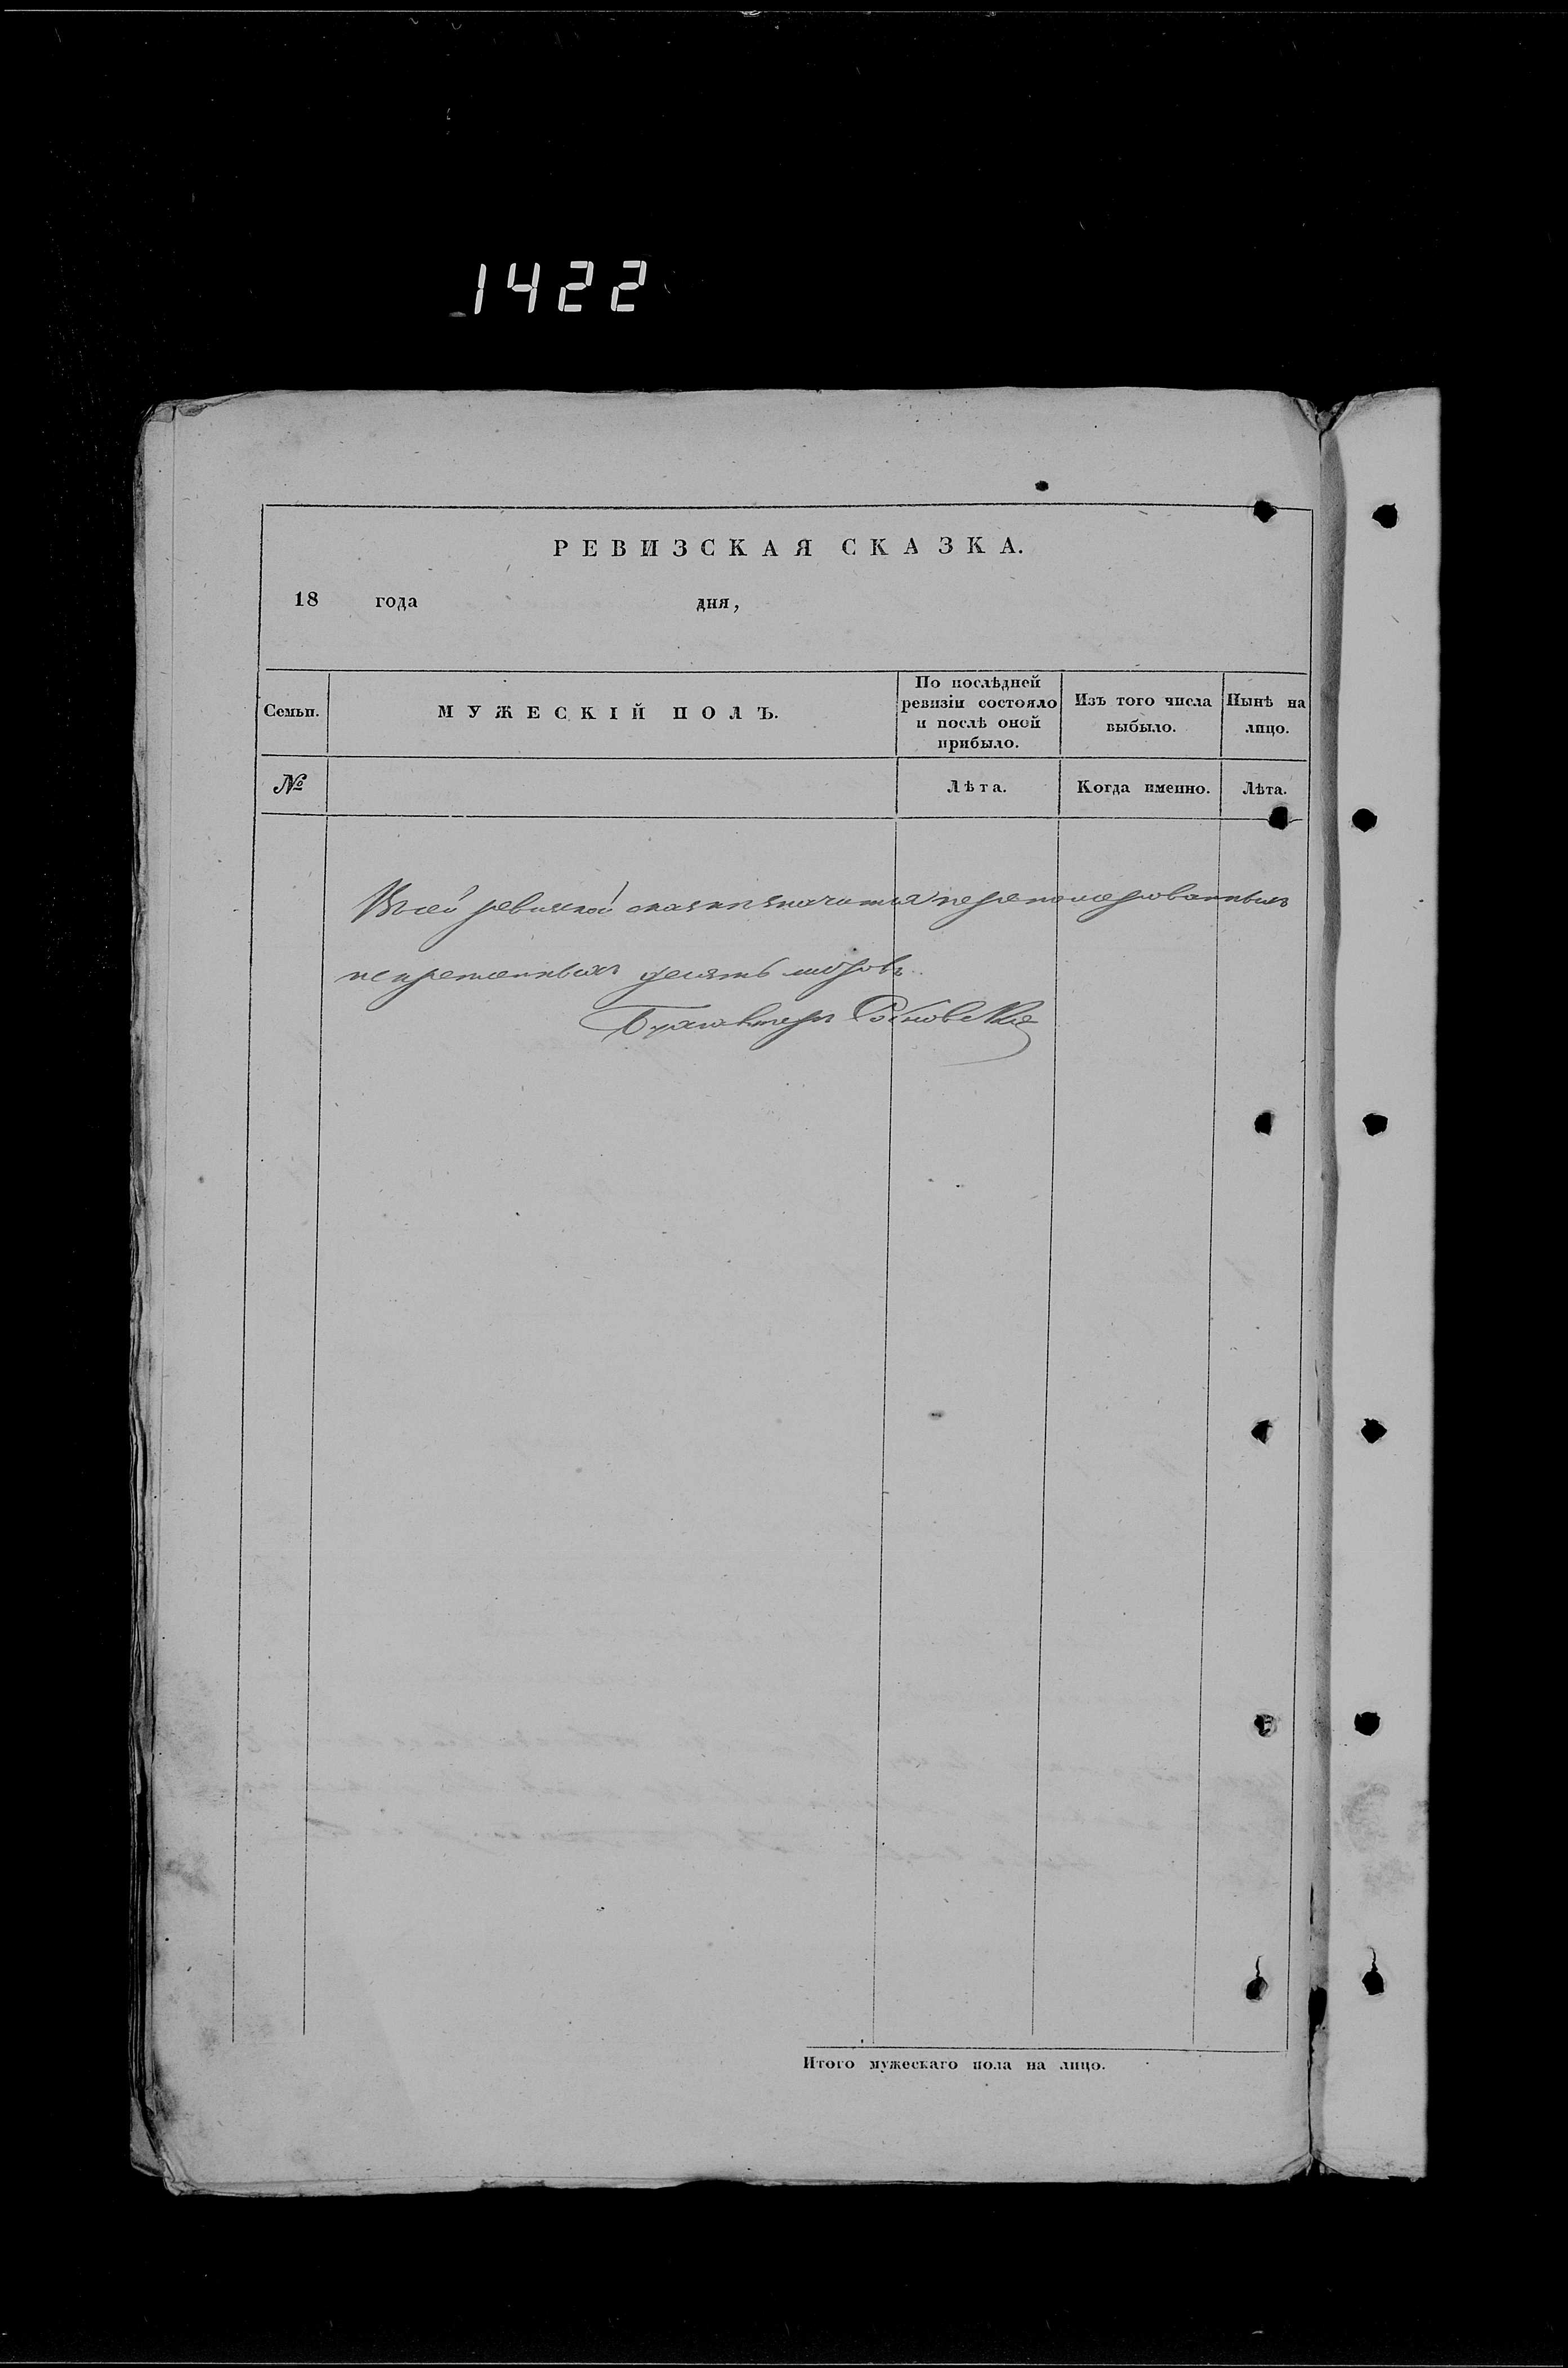 1422
РЕВИЗСКАЯ СКАЗКА.
18 года дня,
Семьи.
МУЖЕСКІЙ ПОЛЪ.
По послѣдней ревизіи состояло и послѣ оной прибыло.
Изъ того числа выбыло.
Нынѣ на лицо.
№
Лѣта.
Когда именно.
Лѣта.
Всей ревизкой сказки значится перенумерованныхъ
искрепленныхъ десять листовъ.
Бухгалтеръ
Итого мужескаго пола на лицо.